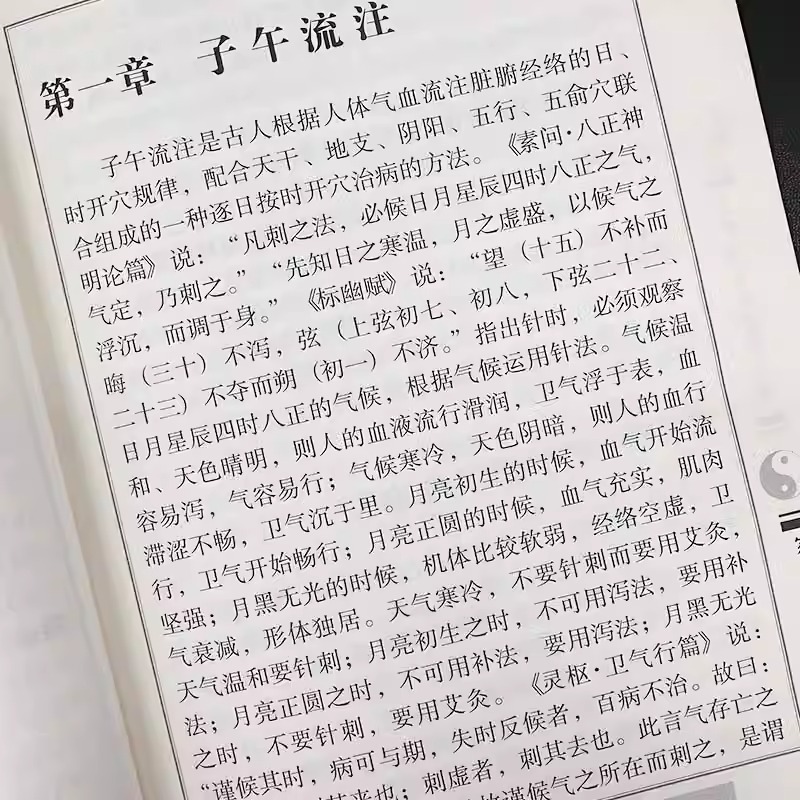 第一章 子午流注
子午流注是古人根据人体气血流注脏腑经络的日、
时开穴规律，配合天干、地支、阴阳、五行、五俞穴联
合组成的一种逐日按时开穴治病的方法。《素问·八正神
明论篇》说：“凡刺之法，必候日月星辰四时八正之气，
气定，乃刺之。”“先知日之寒温，月之虚盛，以候气之
浮沉，而调于身。”《标幽赋》说：“望（十五）不补而
晦（三十）不泻，弦（上弦初七、初八，下弦二十二、
二十三）不夺而朔（初一）不济。”指出针时，必须观察
日月星辰四时八正的气候，根据气候运用针法。气候温
和、天色晴明，则人的血液流行滑润，卫气浮于表，血
容易泻，气容易行；气候寒冷，天色阴暗，则人的血行
滞涩不畅，卫气沉于里。月亮初生的时候，血气开始流
行，卫气开始畅行；月亮正圆的时候，血气充实，肌肉
坚强；月黑无光的时候，机体比较软弱，经络空虚，卫
气衰减，形体独居。天气寒冷，不要针刺而要用艾灸，
天气温和要针刺；月亮初生之时，不可用泻法，要用补
法；月亮正圆之时，不可用补法，要用泻法；月黑无光
之时，不要针刺，要用艾灸。《灵枢·卫气行篇》说：
“谨候其时，病可与期，失时反候者，百病不治。故曰：
其来也；刺虚者，刺其去也。此言气存亡之
谨候气之所在而刺之，是谓